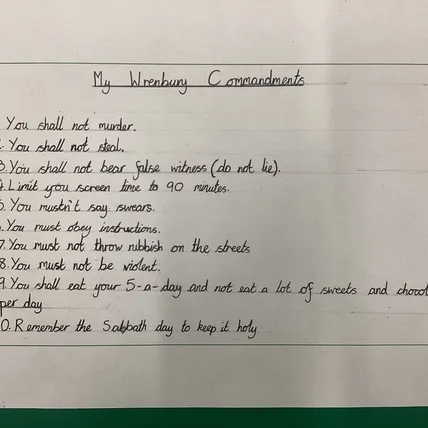 My Wrenbury Commandments
You shall not murder.
. You shall not steal.
3. You shall not bear false witness (do not lie).
4. Limit you screen time to 90 minutes.
5. You mustn't say swears.
. You must obey instructions.
7. You must not throw rubbish on the streets
8. You must not be violent.
9. You shall eat your 5-a-day and not eat a lot of sweets and chocol
per day
0. Remember the Sabbath day to keep it holy